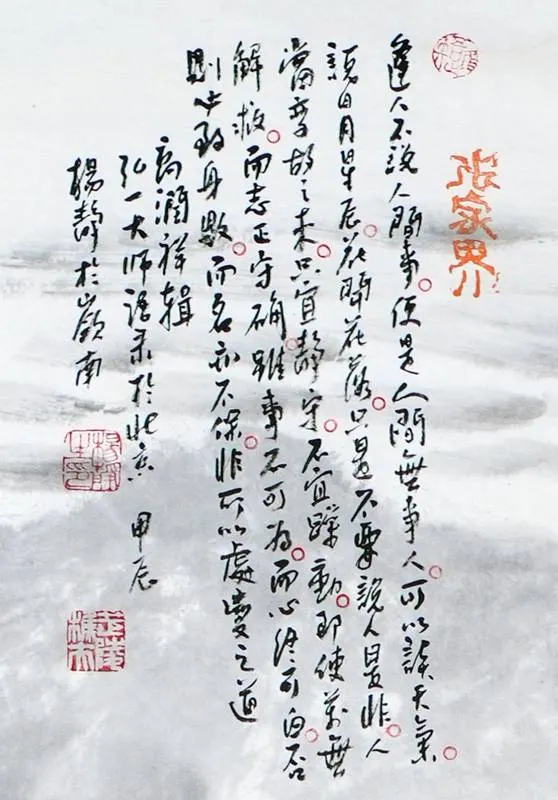 张家界
逢人不說人間事。便是人間無事人。可以談天氣。
說日月星辰。花開花落。只是不要說人是非。人
當變故之來。只宜靜守。不宜躁動。即使萬無
解救。而志正守確。雖事不可為。而心終可白。否
則必致身敗。而名亦不保。非所以處變之道
高潤祥輯
弘一大師語录於北京 甲辰
楊靜於嶺南